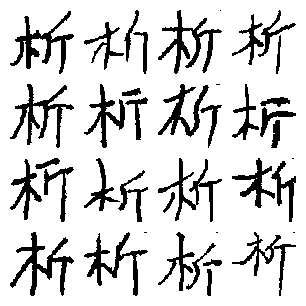 析 析 析 析
析 析 析 析
析 析 析 析
析 析 析 析